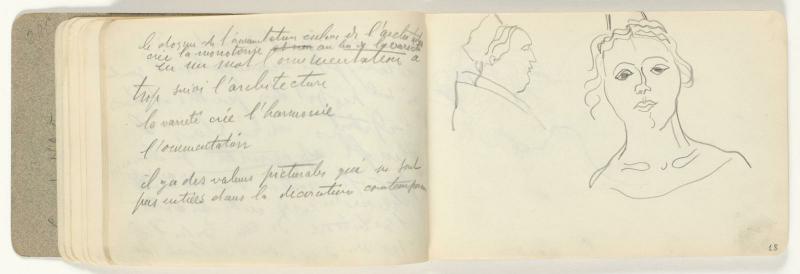 le dogme de l'ornementation esclave de l'architecture
crée la monotonie au lieu de la variété
en un mot l'ornementation a
trop suivi l'architecture
la varieté crée l'harmonie
l'ornementation
il y a des valeurs picturales qui ne sont
pas entiées dans la décoration contemporaine
18